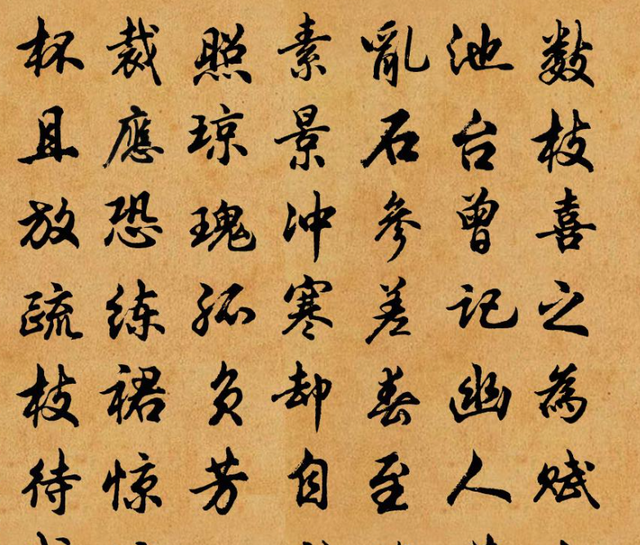 数枝喜之为赋
池台曾记幽人
乱石参差春至
素景冲寒却自
照琼瑰孤负芳
裁應恐练裙惊
杯且放疏枝待